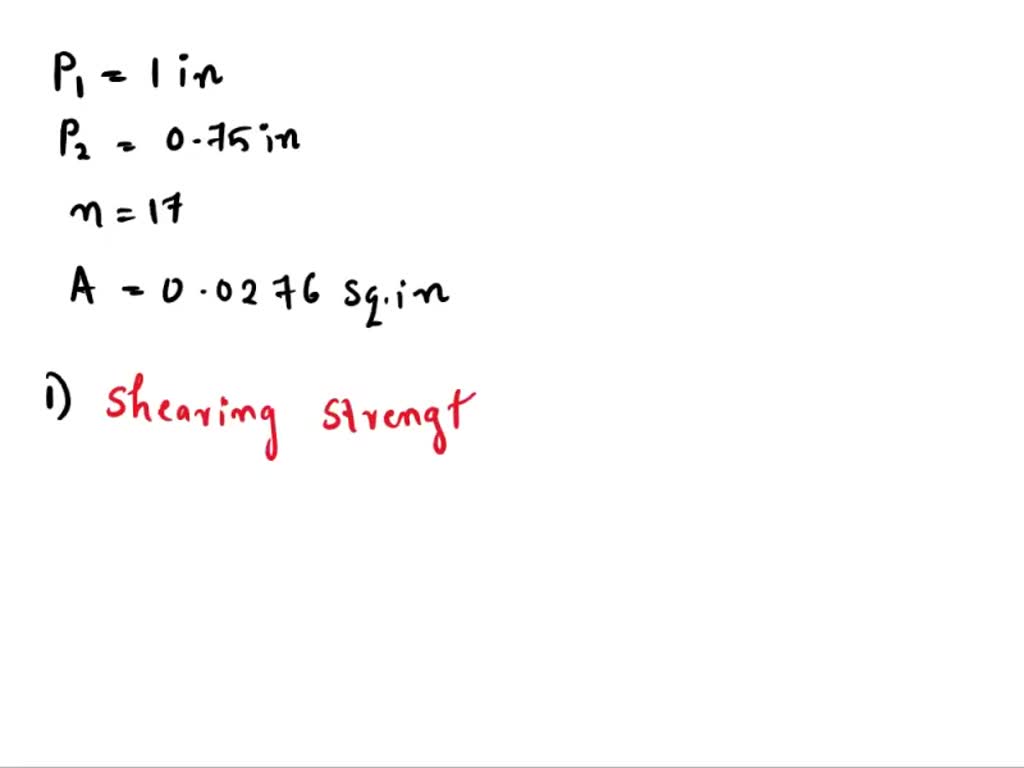 P₁ = 1 in
P₂ = 0.75 in
n = 17
A = 0.0276 sq.in
i) Shearing strengt